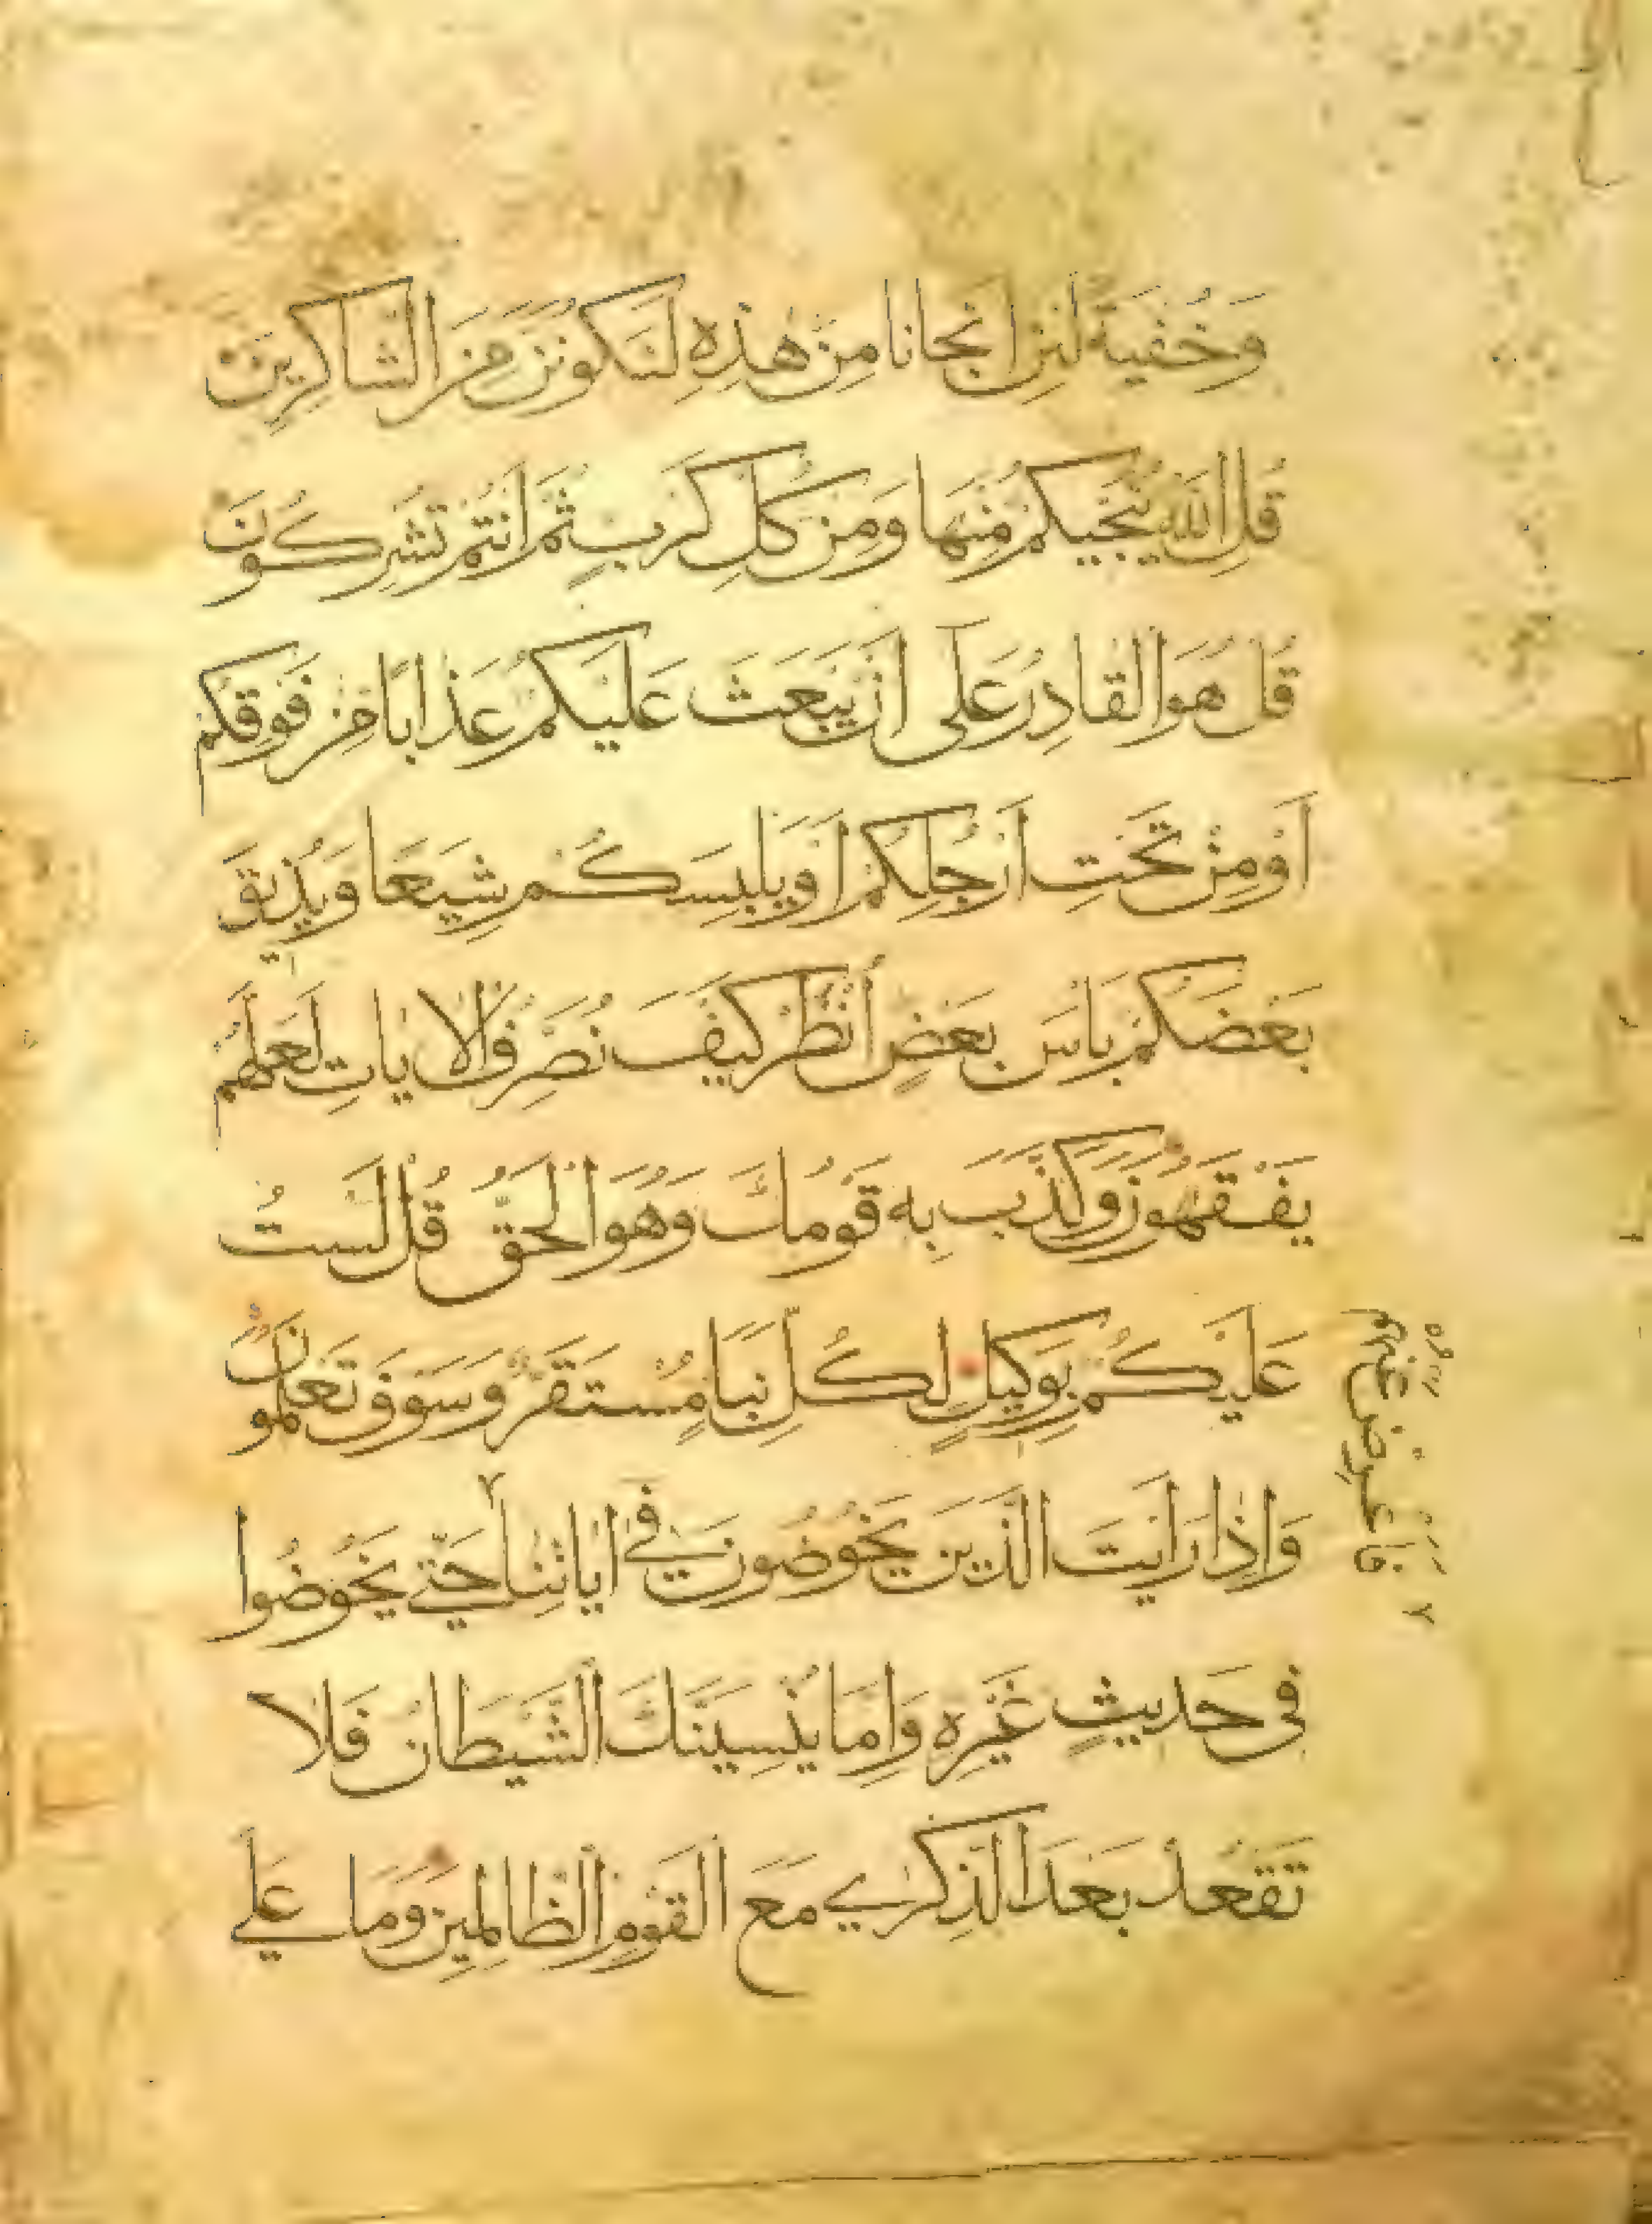 وَخُفْيَةً لَئِنْ اَنْجَانَا مِنْ هٰذِهِ لَنَكُونَنَّ مِنَ الشَّاكِرِينَ
قُلِ اللّٰهُ يُنَجِّيكُمْ مِنْهَا وَمِنْ كُلِّ كَرْبٍ ثُمَّ اَنْتُمْ تُشْرِكُونَ
قُلْ هُوَ الْقَادِرُ عَلٰى اَنْ يَبْعَثَ عَلَيْكُمْ عَذَابًا مِنْ فَوْقِكُمْ
اَوْ مِنْ تَحْتِ اَرْجُلِكُمْ اَوْ يَلْبِسَكُمْ شِيَعًا وَيُذِيقَ
بَعْضَكُمْ بَاْسَ بَعْضٍ اُنْظُرْ كَيْفَ نُصَرِّفُ الْاٰيَاتِ لَعَلَّهُمْ
يَفْقَهُونَ وَكَذَّبَ بِهِ قَوْمُكَ وَهُوَ الْحَقُّ قُلْ لَسْتُ
عَلَيْكُمْ بِوَكِيلٍ لِكُلِّ نَبَاٍ مُسْتَقَرٌّ وَسَوْفَ تَعْلَمُونَ
وَاِذَا رَاَيْتَ الَّذِينَ يَخُوضُونَ فِى اٰيَاتِنَا حَتّٰى يَخُوضُوا
فَاَعْرِضْ عَنْهُمْ
فِى حَدِيثٍ غَيْرِهِ وَاِمَّا يُنْسِيَنَّكَ الشَّيْطَانُ فَلَا
تَقْعُدْ بَعْدَ الذِّكْرٰى مَعَ الْقَوْمِ الظَّالِمِينَ وَمَا عَلَى